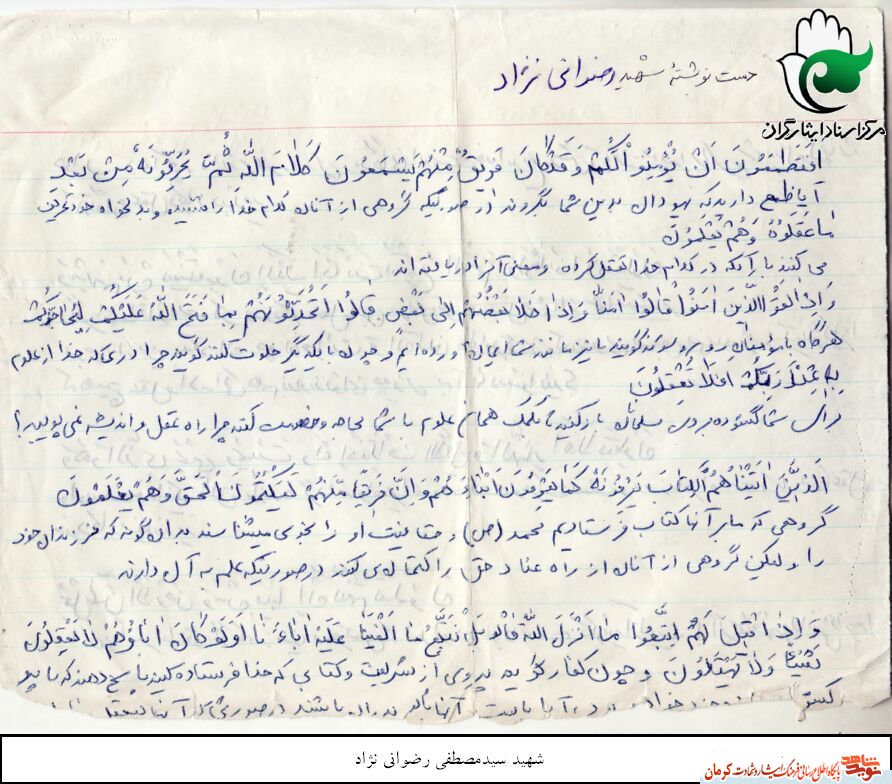 دست نوشتهٔ شهید رضوانی نژاد
مرکز اسناد ایثارگران
اَفَتَطمَعُونَ اَنْ یُؤْمِنُوا لَکُمْ وَقَدْ کَانَ فَرِیقٌ مِنْهُمْ یَسْمَعُونَ کَلَامَ اللهِ ثُمَّ یُحَرِّفُونَهُ مِنْ بَعْدِ
آیا طمع دارید که یهودان بدین شما بگروند در صورتیکه گروهی از آنان کلام خدا را شنیده و بدلخواه خود تحریف
مَا عَقَلُوهُ وَهُمْ یَعْلَمُونَ
می کنند با آنکه در کلام خدا تعقل کرده و معنی آنرا دریافته اند
وَاِذَا لَقُوا الَّذِینَ اٰمَنُوا قَالُوا اٰمَنَّا وَاِذَا خَلَا بَعْضُهُمْ اِلَی بَعْضٍ قَالُوا اَتُحَدِّثُونَهُمْ بِمَا فَتَحَ اللهُ عَلَیْکُمْ لِیُحَاجُّوکُمْ
هرگاه با مؤمنان روبرو شوند گویند ما نیز مانند شما ایمان آورده ایم و چون با یکدیگر خلوت کنند گویند چرا دری که خدا از علوم
بِهِ عِنْدَ رَبِّکُمْ اَفَلَا تَعْقِلُونَ
برای شما گشوده بروی مسلمانان باز کنید تا بکمک همان علوم با شما محاجه و خصومت کنند چرا راه عقل و اندیشه نمی پویید؟
اَلَّذِینَ اٰتَیْنَاهُمُ الْکِتَابَ یَعْرِفُونَهُ کَمَا یَعْرِفُونَ اَبْنَاءَهُمْ وَاِنَّ فَرِیقًا مِنْهُمْ لَیَکْتُمُونَ الْحَقَّ وَهُمْ یَعْلَمُونَ
گروهی که ما بر آنها کتاب فرستادیم محمد (ص) و حقانیت او را بخوبی میشناسند بدان گونه که فرزندان خود
را و لیکن گروهی از آنان از راه عناد حق را کتمان می کنند در صورتیکه علم به آن دارند
وَاِذَا قِیلَ لَهُمُ اتَّبِعُوا مَا اَنْزَلَ اللهُ قَالُوا بَلْ نَتَّبِعُ مَا اَلْفَیْنَا عَلَیْهِ اٰبَاءَنَا اَوَلَوْ کَانَ اٰبَاؤُهُمْ لَا یَعْقِلُونَ
شَیْئًا وَلَا یَهْتَدُونَ و چون کفار را گویند پیروی از شریعت و کتابی که خدا فرستاده کنید پاسخ دهند که ما پیرو
کیش آیا بایست آنها تابع پدران باشند در صورتی که آنها
شهید سیدمصطفی رضوانی نژاد
نوید شاهد
پایگاه اطلاع رسانی فرهنگ ایثار و شهادت کرمان